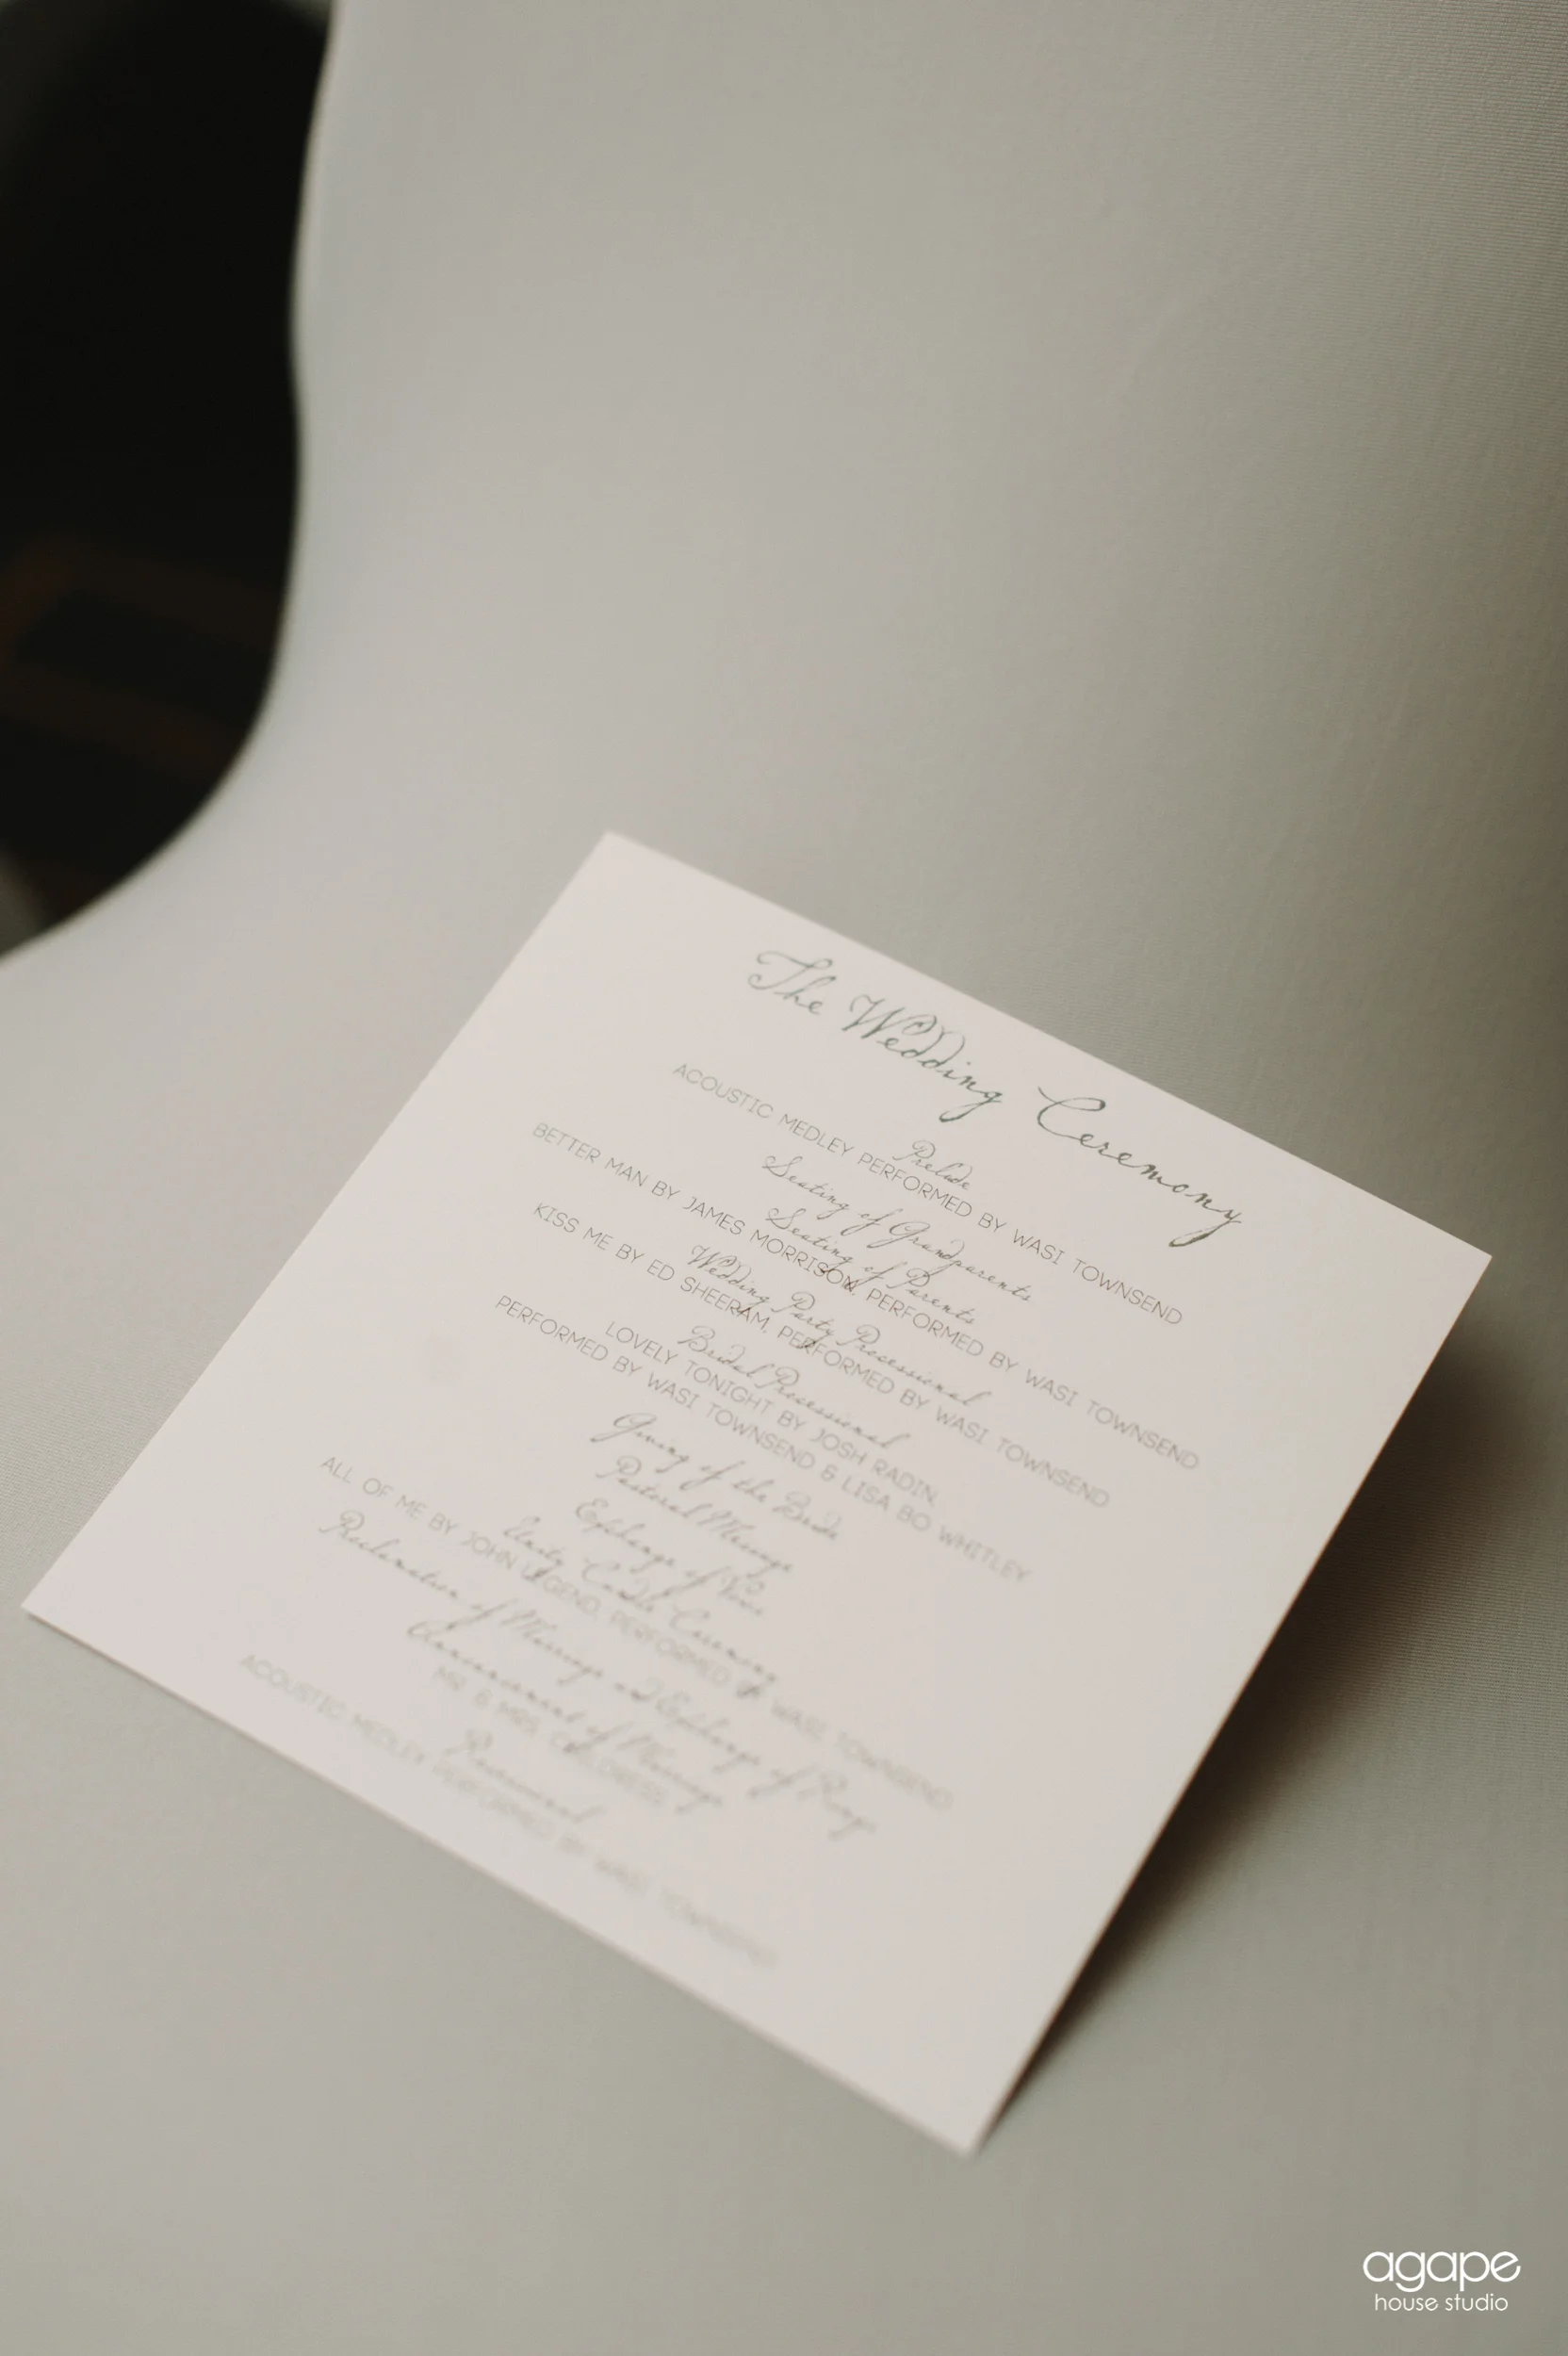 The Wedding Ceremony
Prelude
ACOUSTIC MEDLEY PERFORMED BY WASI TOWNSEND
Seating of Grandparents
Seating of Parents
BETTER MAN BY JAMES MORRISON, PERFORMED BY WASI TOWNSEND
Wedding Party Processional
KISS ME BY ED SHEERAM, PERFORMED BY WASI TOWNSEND
Bridal Processional
LOVELY TONIGHT BY JOSH RADIN,
PERFORMED BY WASI TOWNSEND & LISA BO WHITLEY
Giving of the Bride
Pastoral Message
Exchange of Vows
Unity Candle Ceremony
ALL OF ME BY JOHN LEGEND, PERFORMED BY WASI TOWNSEND
Proclamation of Marriage and Exchange of Rings
Announcement of Marriage
MR & MRS CHILDRESS
Recessional
ACOUSTIC MEDLEY PERFORMED BY WASI TOWNSEND
agape
house studio